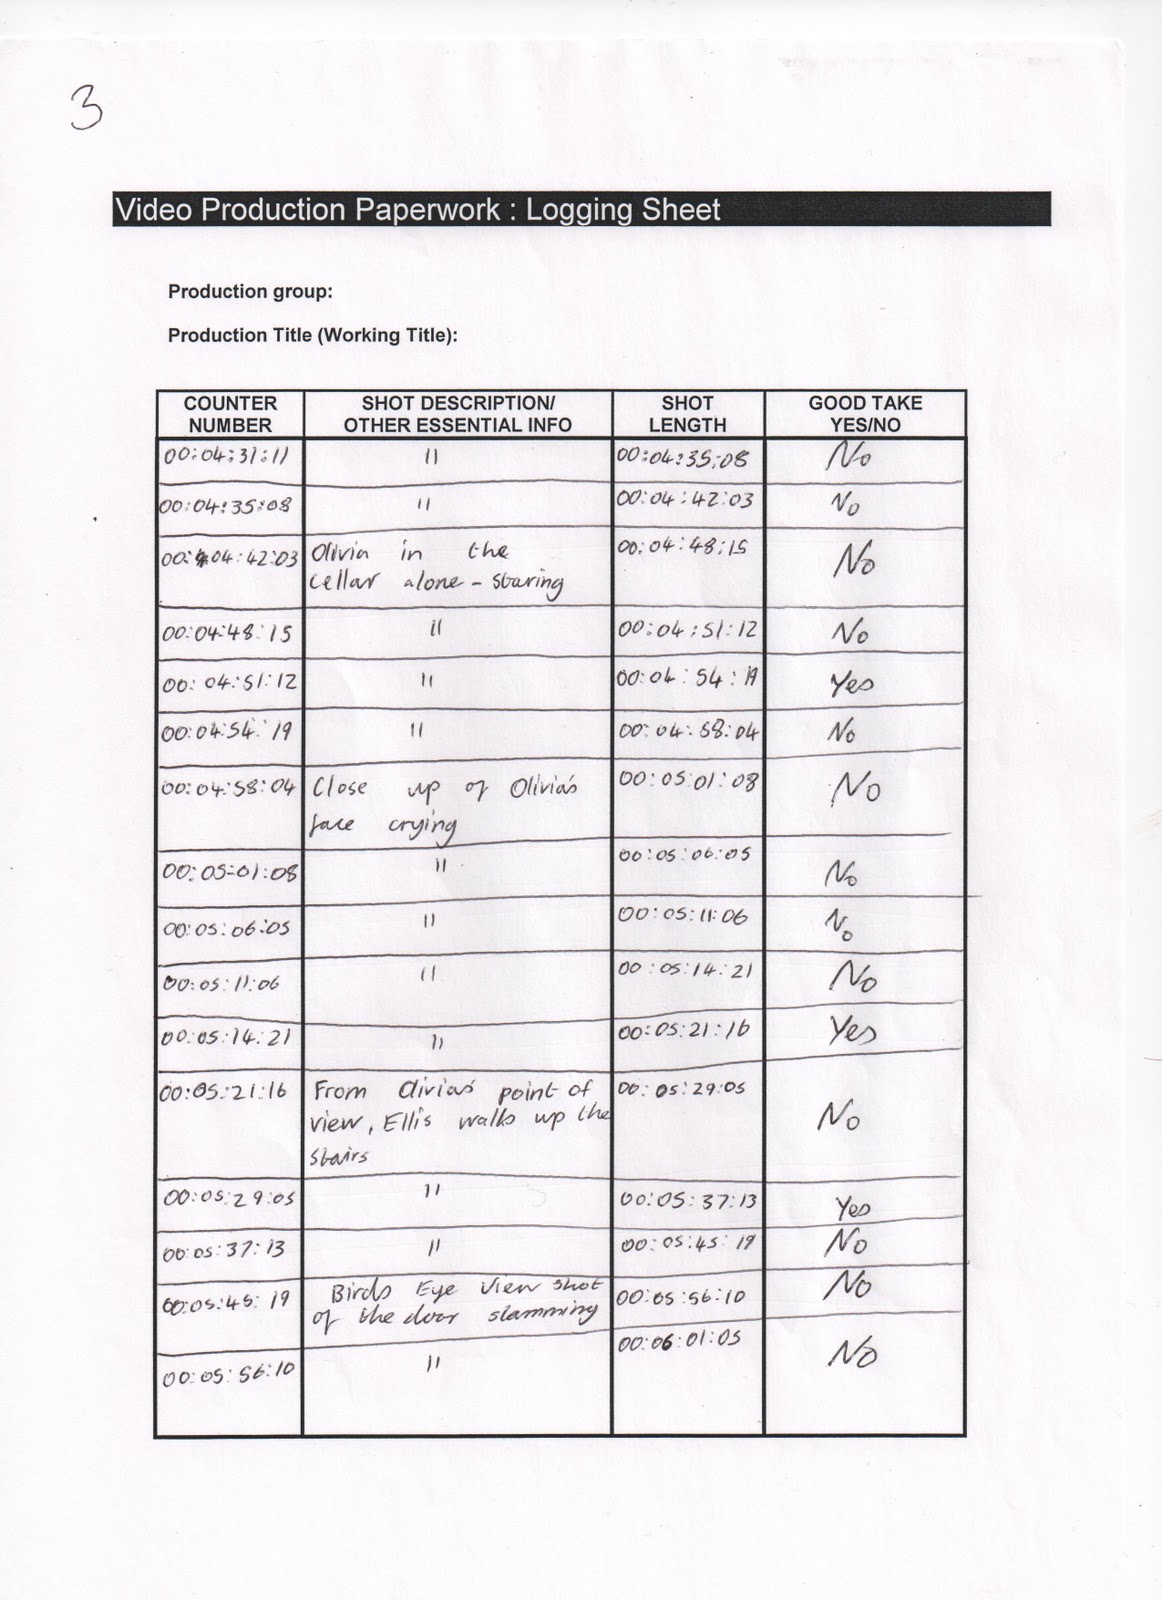 3
Video Production Paperwork : Logging Sheet
Production group:
Production Title (Working Title):
COUNTER NUMBER SHOT DESCRIPTION/ OTHER ESSENTIAL INFO SHOT LENGTH GOOD TAKE YES/NO
00:04:31:11 " 00:04:35:08 No
00:04:35:08 " 00:04:42:03 No
00:04:42:03 Olivia in the 00:04:48:15 No
cellar alone - staring
00:04:48:15 " 00:04:51:12 No
00:04:51:12 " 00:04:54:19 Yes
00:04:54:19 " 00:04:58:04 No
00:04:58:04 Close up of Olivia's 00:05:01:08 No
face crying
00:05:01:08 " 00:05:06:05 No
00:05:06:05 " 00:05:11:06 No
00:05:11:06 " 00:05:14:21 No
00:05:14:21 " 00:05:21:16 Yes
00:05:21:16 From Olivia's point of 00:05:29:05 No
view, Ellis walks up the
stairs
00:05:29:05 " 00:05:37:13 Yes
00:05:37:13 " 00:05:45:19 No
00:05:45:19 Birds Eye View shot 00:05:56:10 No
of the door slamming
00:05:56:10 " 00:06:01:05 No